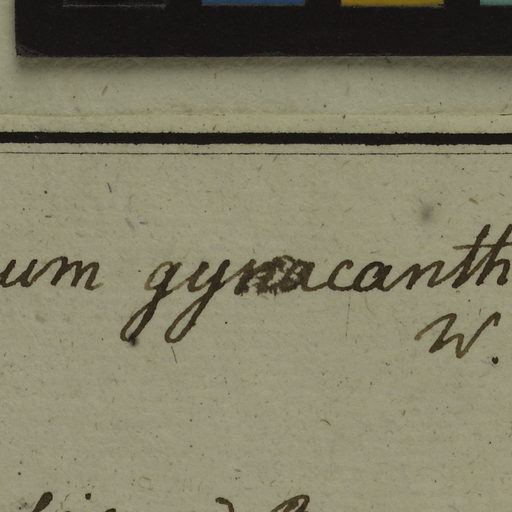 um gynacanth
W.